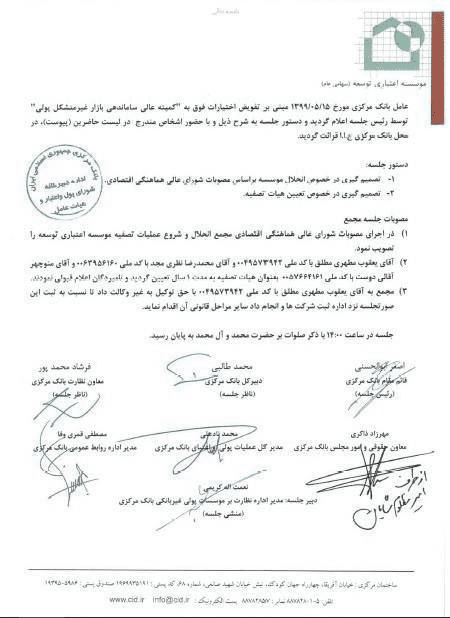 باسمه تعالی
موسسه اعتباری توسعه (سهامی عام)
عامل بانک مرکزی مورخ ۱۳۹۹/۰۵/۱۵ مبنی بر تفویض اختیارات فوق به "کمیته عالی ساماندهی بازار غیرمتشکل پولی"
توسط رئیس جلسه اعلام گردید و دستور جلسه به شرح ذیل و با حضور اشخاص مندرج در لیست حاضرین (پیوست)، در
محل بانک مرکزی ج.ا.ا قرائت گردید.
بانک مرکزی جمهوری اسلامی ایران
اداره دبیرخانه
شورای پول و اعتبار و
هیات عامل
دستور جلسه:
۱- تصمیم گیری در خصوص انحلال موسسه براساس مصوبات شورای عالی هماهنگی اقتصادی.
۲- تصمیم گیری در خصوص تعیین هیات تصفیه.
مصوبات جلسه مجمع
۱) در اجرای مصوبات شورای عالی هماهنگی اقتصادی مجمع انحلال و شروع عملیات تصفیه موسسه اعتباری توسعه را
تصویب نمود.
۲) آقای یعقوب مطهری مطلق با کد ملی ۰۰۴۹۵۷۳۹۴۲ و آقای محمدرضا نظری مجد با کد ملی ۰۰۶۳۹۵۶۱۶۰ و آقای منوچهر
آقائی دوست با کد ملی ۰۰۵۷۶۶۴۱۶۱ بعنوان هیات تصفیه به مدت ۱ سال تعیین گردید و نامبردگان اعلام قبولی نمودند.
۳) مجمع به آقای یعقوب مطهری مطلق با کد ملی ۰۰۴۹۵۷۳۹۴۲ با حق توکیل به غیر وکالت داد تا نسبت به ثبت این
صورتجلسه نزد اداره ثبت شرکت ها و انجام داد سایر مراحل قانونی آن اقدام نماید.
جلسه در ساعت ۱۴:۰۰ با ذکر صلوات بر حضرت محمد و آل محمد به پایان رسید.
اصغر ابوالحسنی
قائم مقام بانک مرکزی
(رئیس جلسه)
محمد طالبی
دبیرکل بانک مرکزی
(ناظر جلسه)
فرشاد محمد پور
معاون نظارت بانک مرکزی
(ناظر جلسه)
مهرزاد ذاکری
معاون حقوقی و امور مجلس بانک مرکزی
محمد نادعلی
مدیر کل عملیات پولی و اعتباری بانک مرکزی
مصطفی قمری وفا
مدیر اداره روابط عمومی بانک مرکزی
نعمت اله کریمی
دبیر جلسه: مدیر اداره نظارت بر موسسات پولی غیربانکی بانک مرکزی
(منشی جلسه)
از طرف
ساختمان مرکزی : خیابان آفریقا، چهارراه جهان کودک، نبش خیابان شهید صانعی، شماره ۶۸، کد پستی : ۱۹۶۹۹۳۵۱۹۱ صندوق پستی : ۵۹۸۶-۱۹۳۹۵
تلفن : ۵-۸۸۷۸۲۸۰۱ نمابر : ۸۸۷۸۲۸۵۷ پست الکترونیک : info@cid.ir www.cid.ir